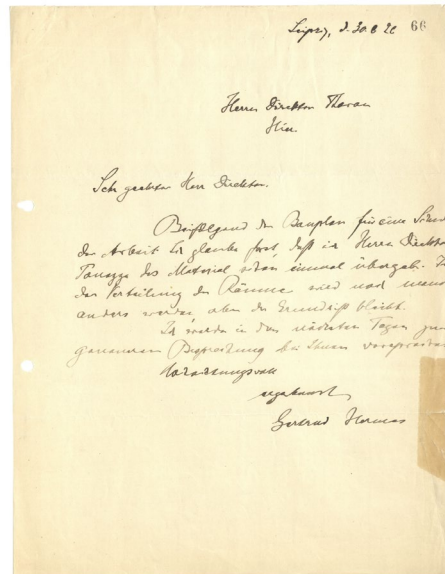 Leipzig, d. 30.6 26 66
Herrn Direktor Tharan
Hier
Sehr geehrter Herr Direktor.
Beifolgend den Bauplan für eine Schule
der Arbeit. Ich glaube fast, daß ich Herrn Direktor
das Material schon einmal übergab. In
der Verteilung der Räume wird noch manches
anders werden, aber der Grundriß bleibt.
Ich werde in den nächsten Tagen zur
genaueren Besprechung bei Ihnen vorsprechen
Hochachtungsvoll
ergebenst
Gertrud Hermes